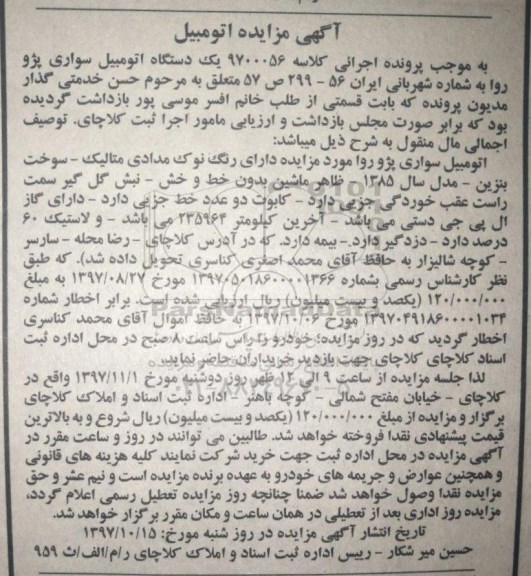 آگهی مزایده اتومبیل
به موجب پرونده اجرائی کلاسه ۹۷۰۰۰۵۶ یک دستگاه اتومبیل سواری پژو
روا به شماره شهربانی ایران ۵۶ - ۲۹۹ ص ۵۷ متعلق به مرحوم حسن خدمتی گذار
مدیون پرونده که بابت قسمتی از طلب خانم افسر موسی پور بازداشت گردیده
بود که برابر صورت مجلس بازداشت و ارزیابی مامور اجرا ثبت کلاچای. توصیف
اجمالی مال منقول به شرح ذیل میباشد:
اتومبیل سواری پژو روا مورد مزایده دارای رنگ نوک مدادی متالیک - سوخت
بنزین - مدل سال ۱۳۸۵ - ظاهر ماشین بدون خط و خش - نبش گل گیر سمت
راست عقب خوردگی جزیی دارد - کاپوت دو عدد خط جزیی دارد - دارای گاز
ال پی جی دستی می باشد - آخرین کیلومتر ۲۳۵۹۶۴ می باشد - و لاستیک ۶۰
درصد دارد - دزدگیر دارد - بیمه دارد. که در آدرس کلاچای - رضا محله - سارسر
- کوچه شالیزار به حافظ آقای محمد اصغری کناسری تحویل داده شد). که طبق
نظر کارشناس رسمی بشماره ۱۳۹۷۰۵۰۱۸۶۰۰۰۰۱۳۶۶ مورخ ۱۳۹۷/۰۸/۲۷ به مبلغ
۱۲۰/۰۰۰/۰۰۰ (یکصد و بیست میلیون) ریال ارزیابی شده است. برابر اخطار شماره
۱۳۹۷۰۴۹۱۸۶۰۰۰۰۱۰۳۴ مورخ ۱۳۹۷/۱۰/۰۶ به حافظ اموال آقای محمد کناسری
اخطار گردید که در روز مزایده؛ خودرو را راس ساعت ۸ صبح در محل اداره ثبت
اسناد کلاچای کلاچای جهت بازدید خریداران حاضر نماید.
لذا جلسه مزایده از ساعت ۹ الی ۱۲ ظهر روز دوشنبه مورخ ۱۳۹۷/۱۱/۱ واقع در
کلاچای - خیابان مفتح شمالی - کوچه باهنر - اداره ثبت اسناد و املاک کلاچای
برگزار و مزایده از مبلغ ۱۲۰/۰۰۰/۰۰۰ (یکصد و بیست میلیون) ریال شروع و به بالاترین
قیمت پیشنهادی نقدا فروخته خواهد شد. طالبین می توانند در روز و ساعت مقرر در
آگهی مزایده در محل اداره ثبت جهت خرید شرکت نمایند کلیه هزینه های قانونی
و همچنین عوارض و جریمه های خودرو به عهده برنده مزایده است و نیم عشر و حق
مزایده نقدا وصول خواهد شد ضمنا چنانچه روز مزایده تعطیل رسمی اعلام گردد،
مزایده روز اداری بعد از تعطیلی در همان ساعت و مکان مقرر برگزار خواهد شد.
تاریخ انتشار آگهی مزایده در روز شنبه مورخ: ۱۳۹۷/۱۰/۱۵
حسین میر شکار - رییس اداره ثبت اسناد و املاک کلاچای ر/م/الف/ث ۹۵۹